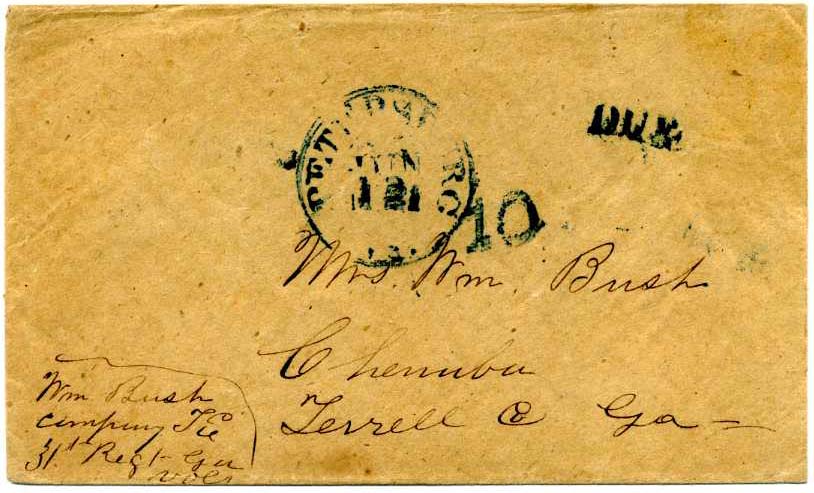 PETERSBURG
JUN
12
DUE
10
Mrs. Wm. Bush
Chenuba
Terrell Co Ga
Wm Bush
company
31st Regt Ga
vols